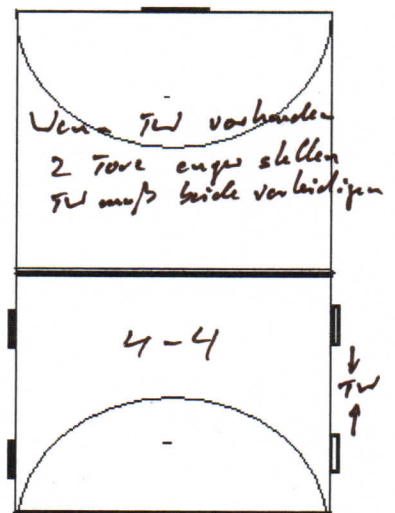 Wenn TW vorhanden
2 Tore enger stellen
TW muß beide verteidigen
4-4
TW